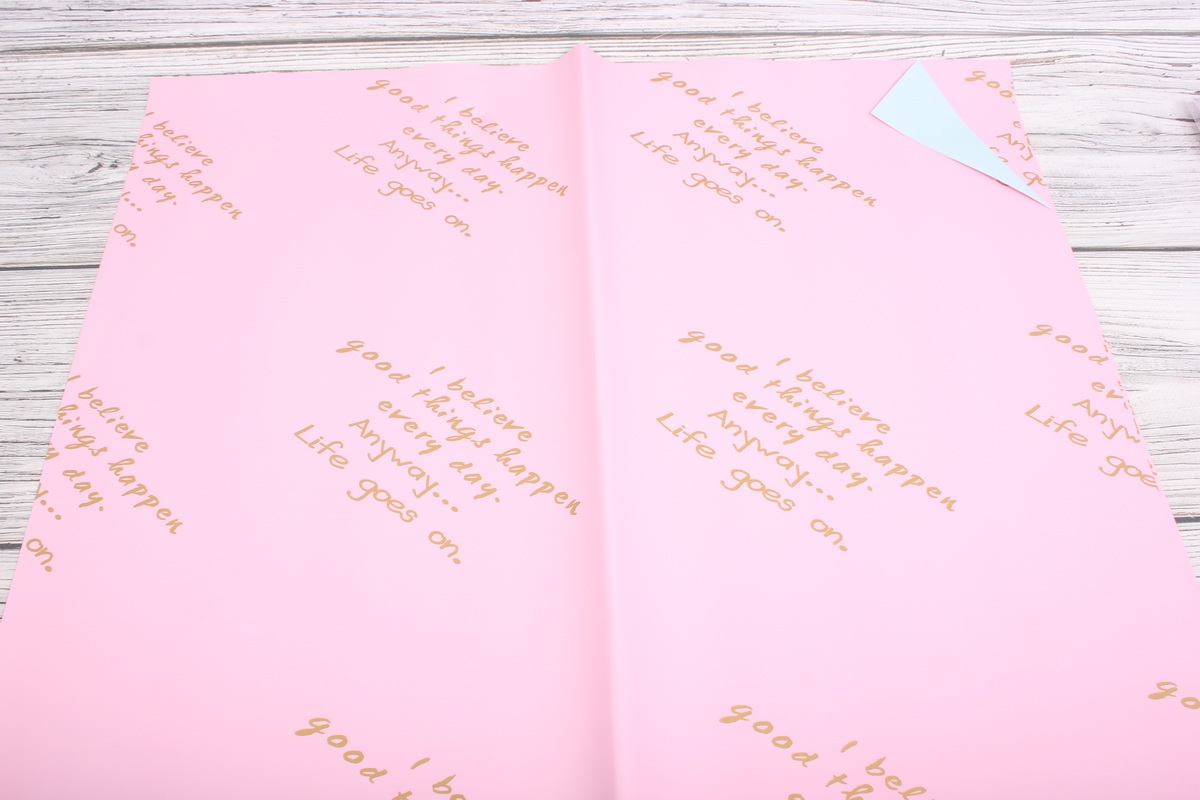 I believe
good things happen
every day.
Anyway...
Life goes on.
I believe
good things happen
every day.
Anyway...
Life goes on.
good
believe
things happen
day.
on.
I believe
good things happen
every day.
Anyway...
Life goes on.
I believe
good things happen
every day.
Anyway...
Life goes on.
I believe
things happen
day.
on.
good
Life
good
I
good
I
good